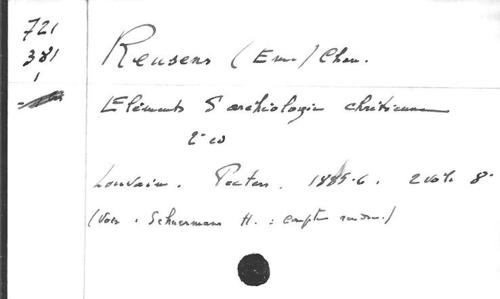 721
381
1
Reusens (Em.) Chan.
Eléments d'archéologie chrétienne
2e éd
Louvain. Peeters. 1885-6. 2 vol. 8°
(Voir : Schuermans H. : compte rendu.)